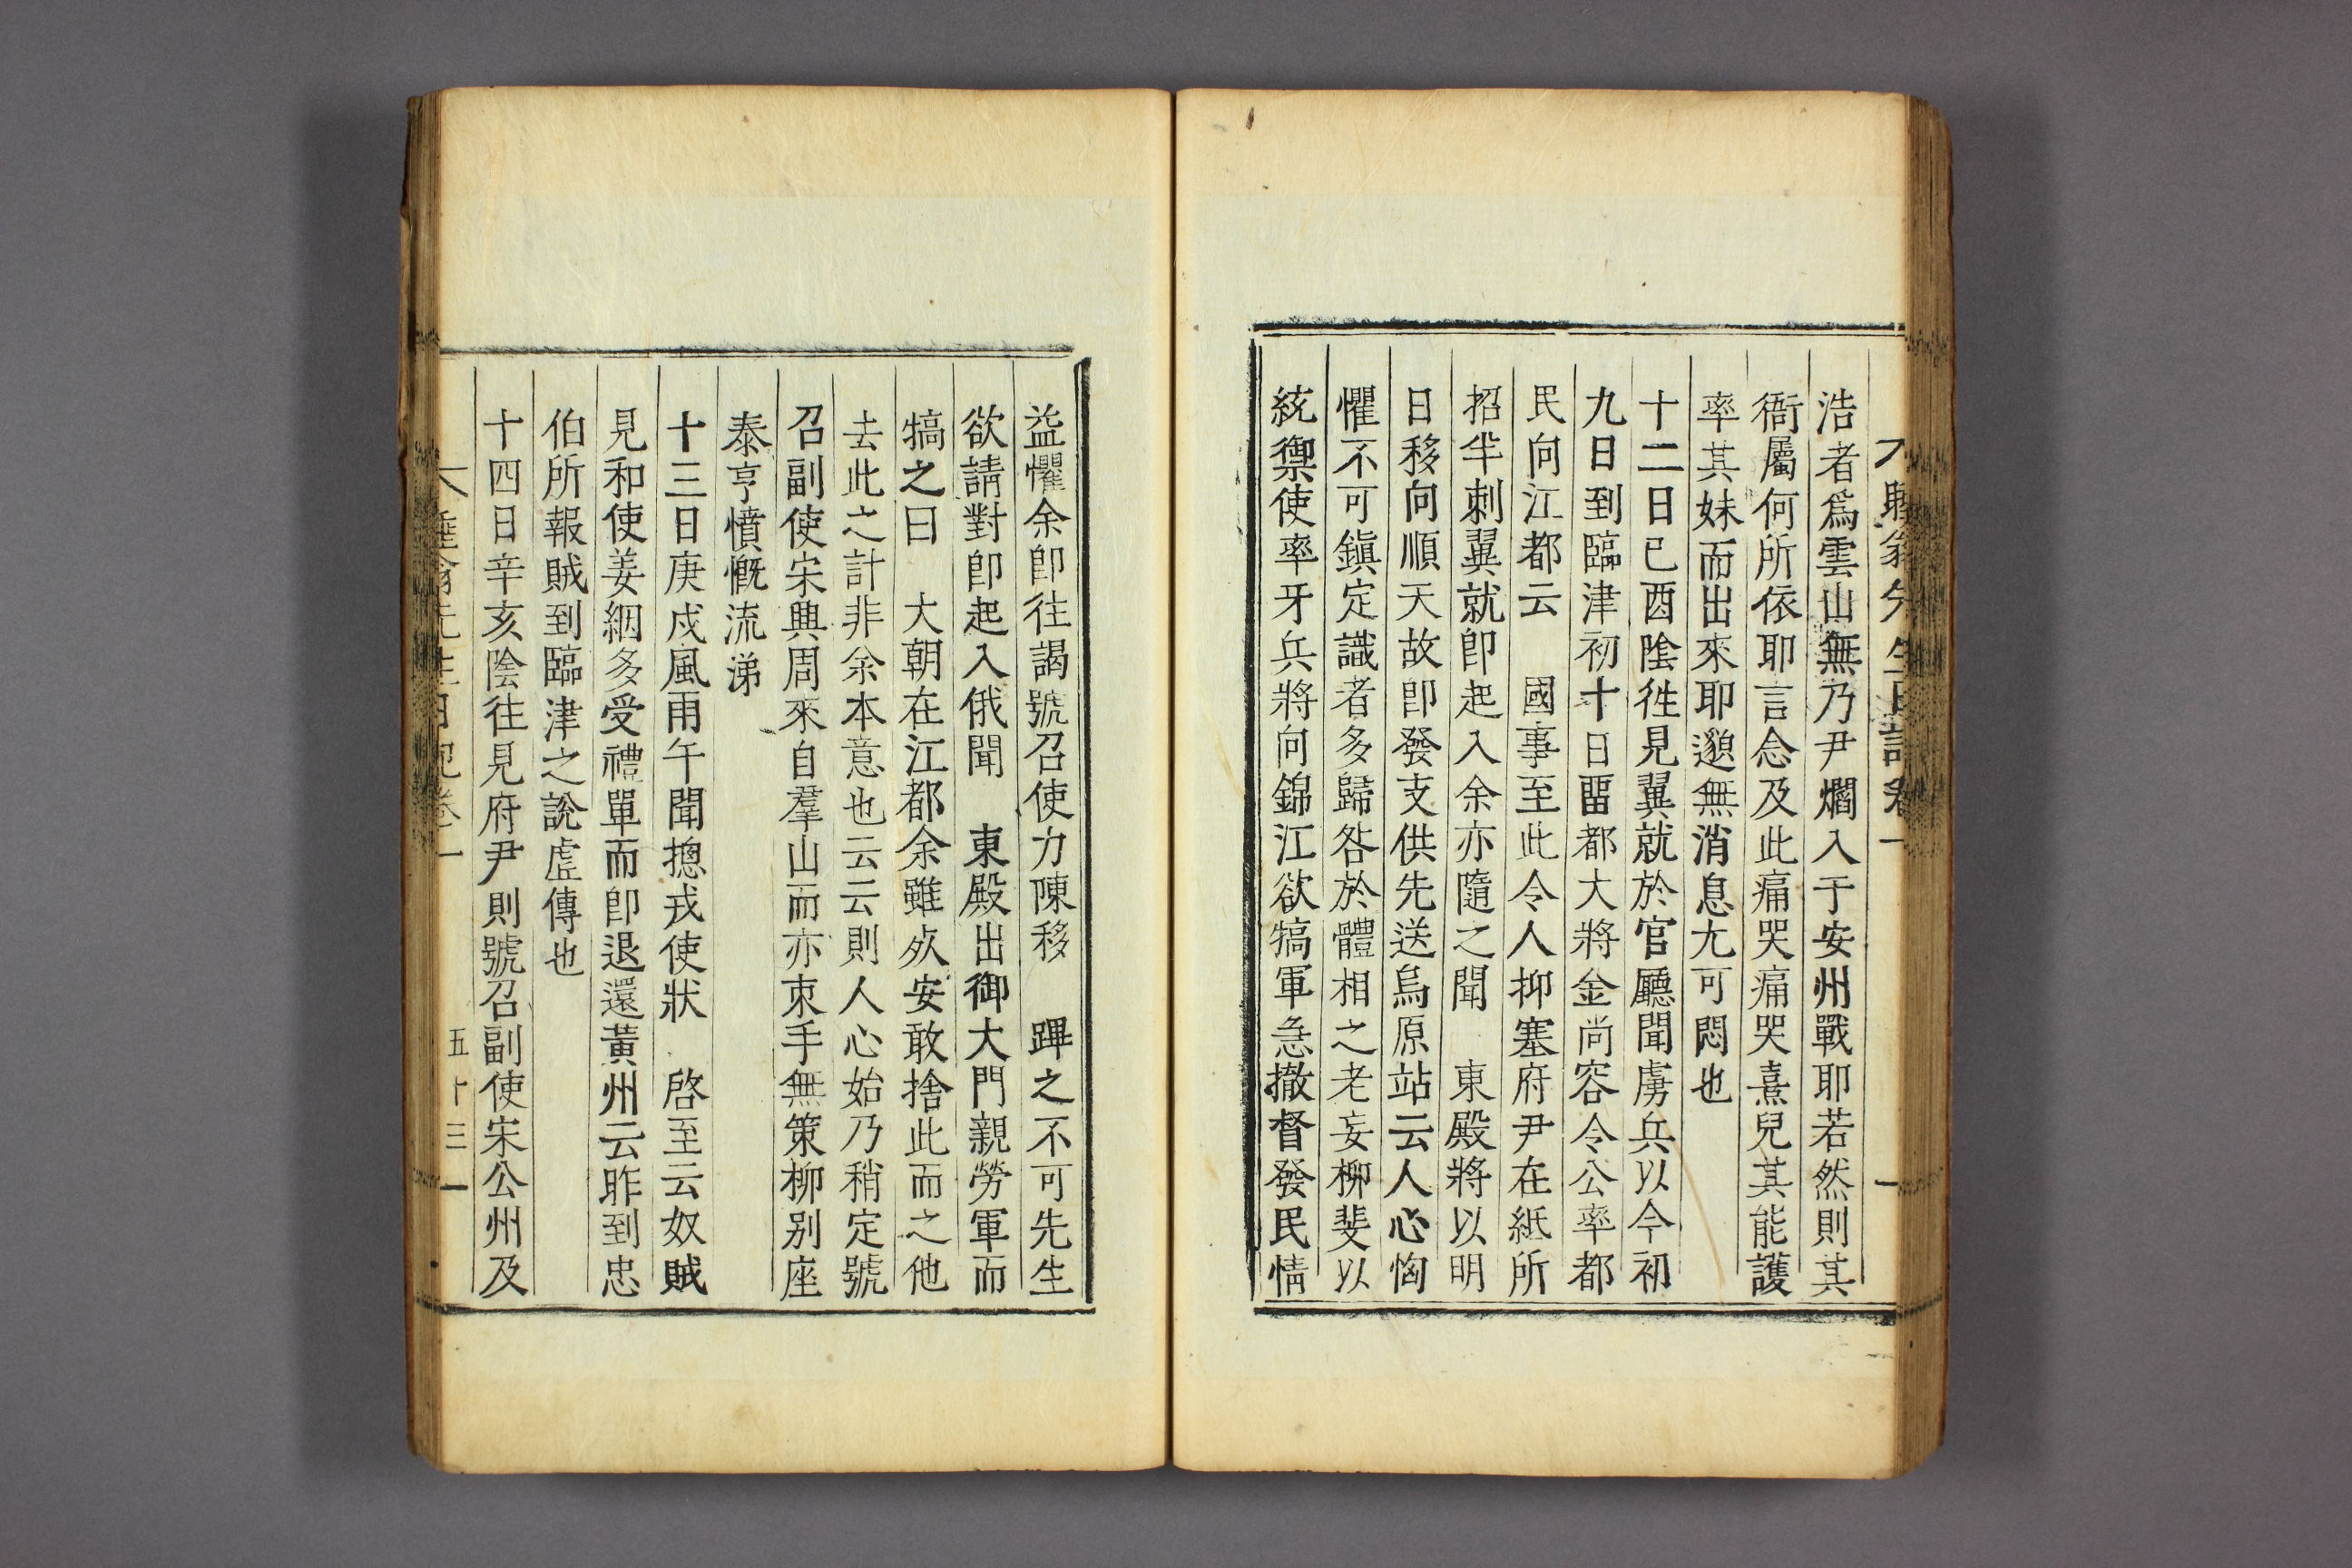 睡翁先生日記卷一
浩者爲雲山無乃尹爓入于安州戰耶若然則其
衙屬何所依耶言念及此痛哭痛哭熹兒其能護
率其妹而出來耶邈無消息尢可悶也
十二日己酉陰徃見翼就於官廳聞虜兵以今初
九日到臨津初十日畱都大將金尚容令公率都
民向江都云　國事至此令人抑塞府尹在紙所
招羋刺翼就卽起入余亦隨之聞　東殿將以明
日移向順天故卽發支供先送烏原站云人心恟
懼不可鎭定識者多歸咎於體相之老妄柳斐以
統禦使率牙兵將向錦江欲犒軍急撤督發民情
益懼余卽往謁號召使力陳移　蹕之不可先生
欲請對卽起入俄聞　東殿出御大門親勞軍而
犒之曰　大朝在江都余雖久安敢捨此而之他
去此之計非余本意也云云則人心始乃稍定號
召副使宋興周來自羣山而亦束手無策柳别座
泰亨憤慨流涕
十三日庚戌風雨午聞摠戎使狀　啓至云奴賊
見和使姜絪多受禮單而卽退還黃州云昨到忠
伯所報賊到臨津之說虛傳也
十四日辛亥陰往見府尹則號召副使宋公州及
睡翁先生日記卷一
五十三